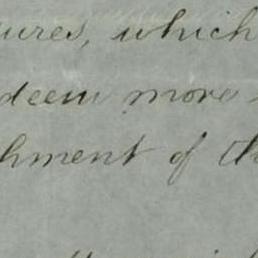 ures, which
deem more
hment of th